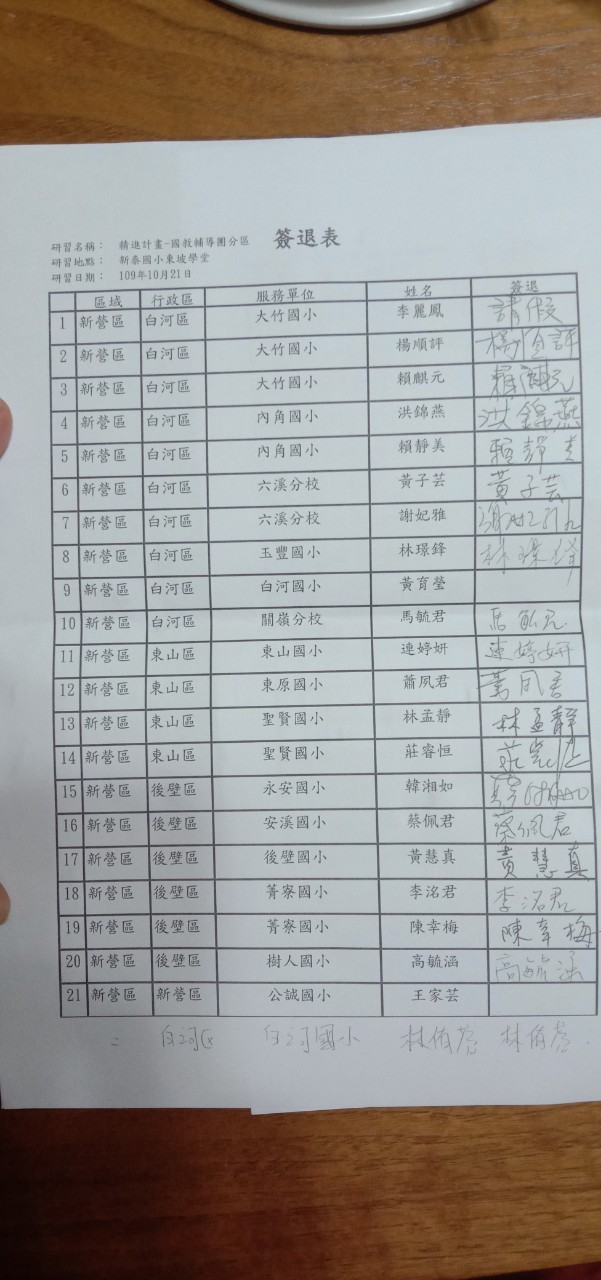 簽退表
研習名稱： 精進計畫-國教輔導團分區
研習地點： 新泰國小東坡學堂
研習日期： 109年10月21日
區域 行政區 服務單位 姓名 簽退
1 新營區 白河區 大竹國小 李麗鳳 請假
2 新營區 白河區 大竹國小 楊順評
3 新營區 白河區 大竹國小 賴麒元
4 新營區 白河區 內角國小 洪錦燕 洪錦燕
5 新營區 白河區 內角國小 賴靜美 賴靜美
6 新營區 白河區 六溪分校 黃子芸 黃子芸
7 新營區 白河區 六溪分校 謝妃雅
8 新營區 白河區 玉豐國小 林璟鋒 林璟鋒
9 新營區 白河區 白河國小 黃育瑩
10 新營區 白河區 關嶺分校 馬毓君
11 新營區 東山區 東山國小 連婷妍 連婷妍
12 新營區 東山區 東原國小 蕭夙君
13 新營區 東山區 聖賢國小 林孟靜 林孟靜
14 新營區 東山區 聖賢國小 莊睿恒
15 新營區 後壁區 永安國小 韓湘如
16 新營區 後壁區 安溪國小 蔡佩君 蔡佩君
17 新營區 後壁區 後壁國小 黃慧真 黃慧真
18 新營區 後壁區 菁寮國小 李洺君 李洺君
19 新營區 後壁區 菁寮國小 陳幸梅 陳幸梅
20 新營區 後壁區 樹人國小 高毓涵 高毓涵
21 新營區 新營區 公誠國小 王家芸
白河區 白河國小